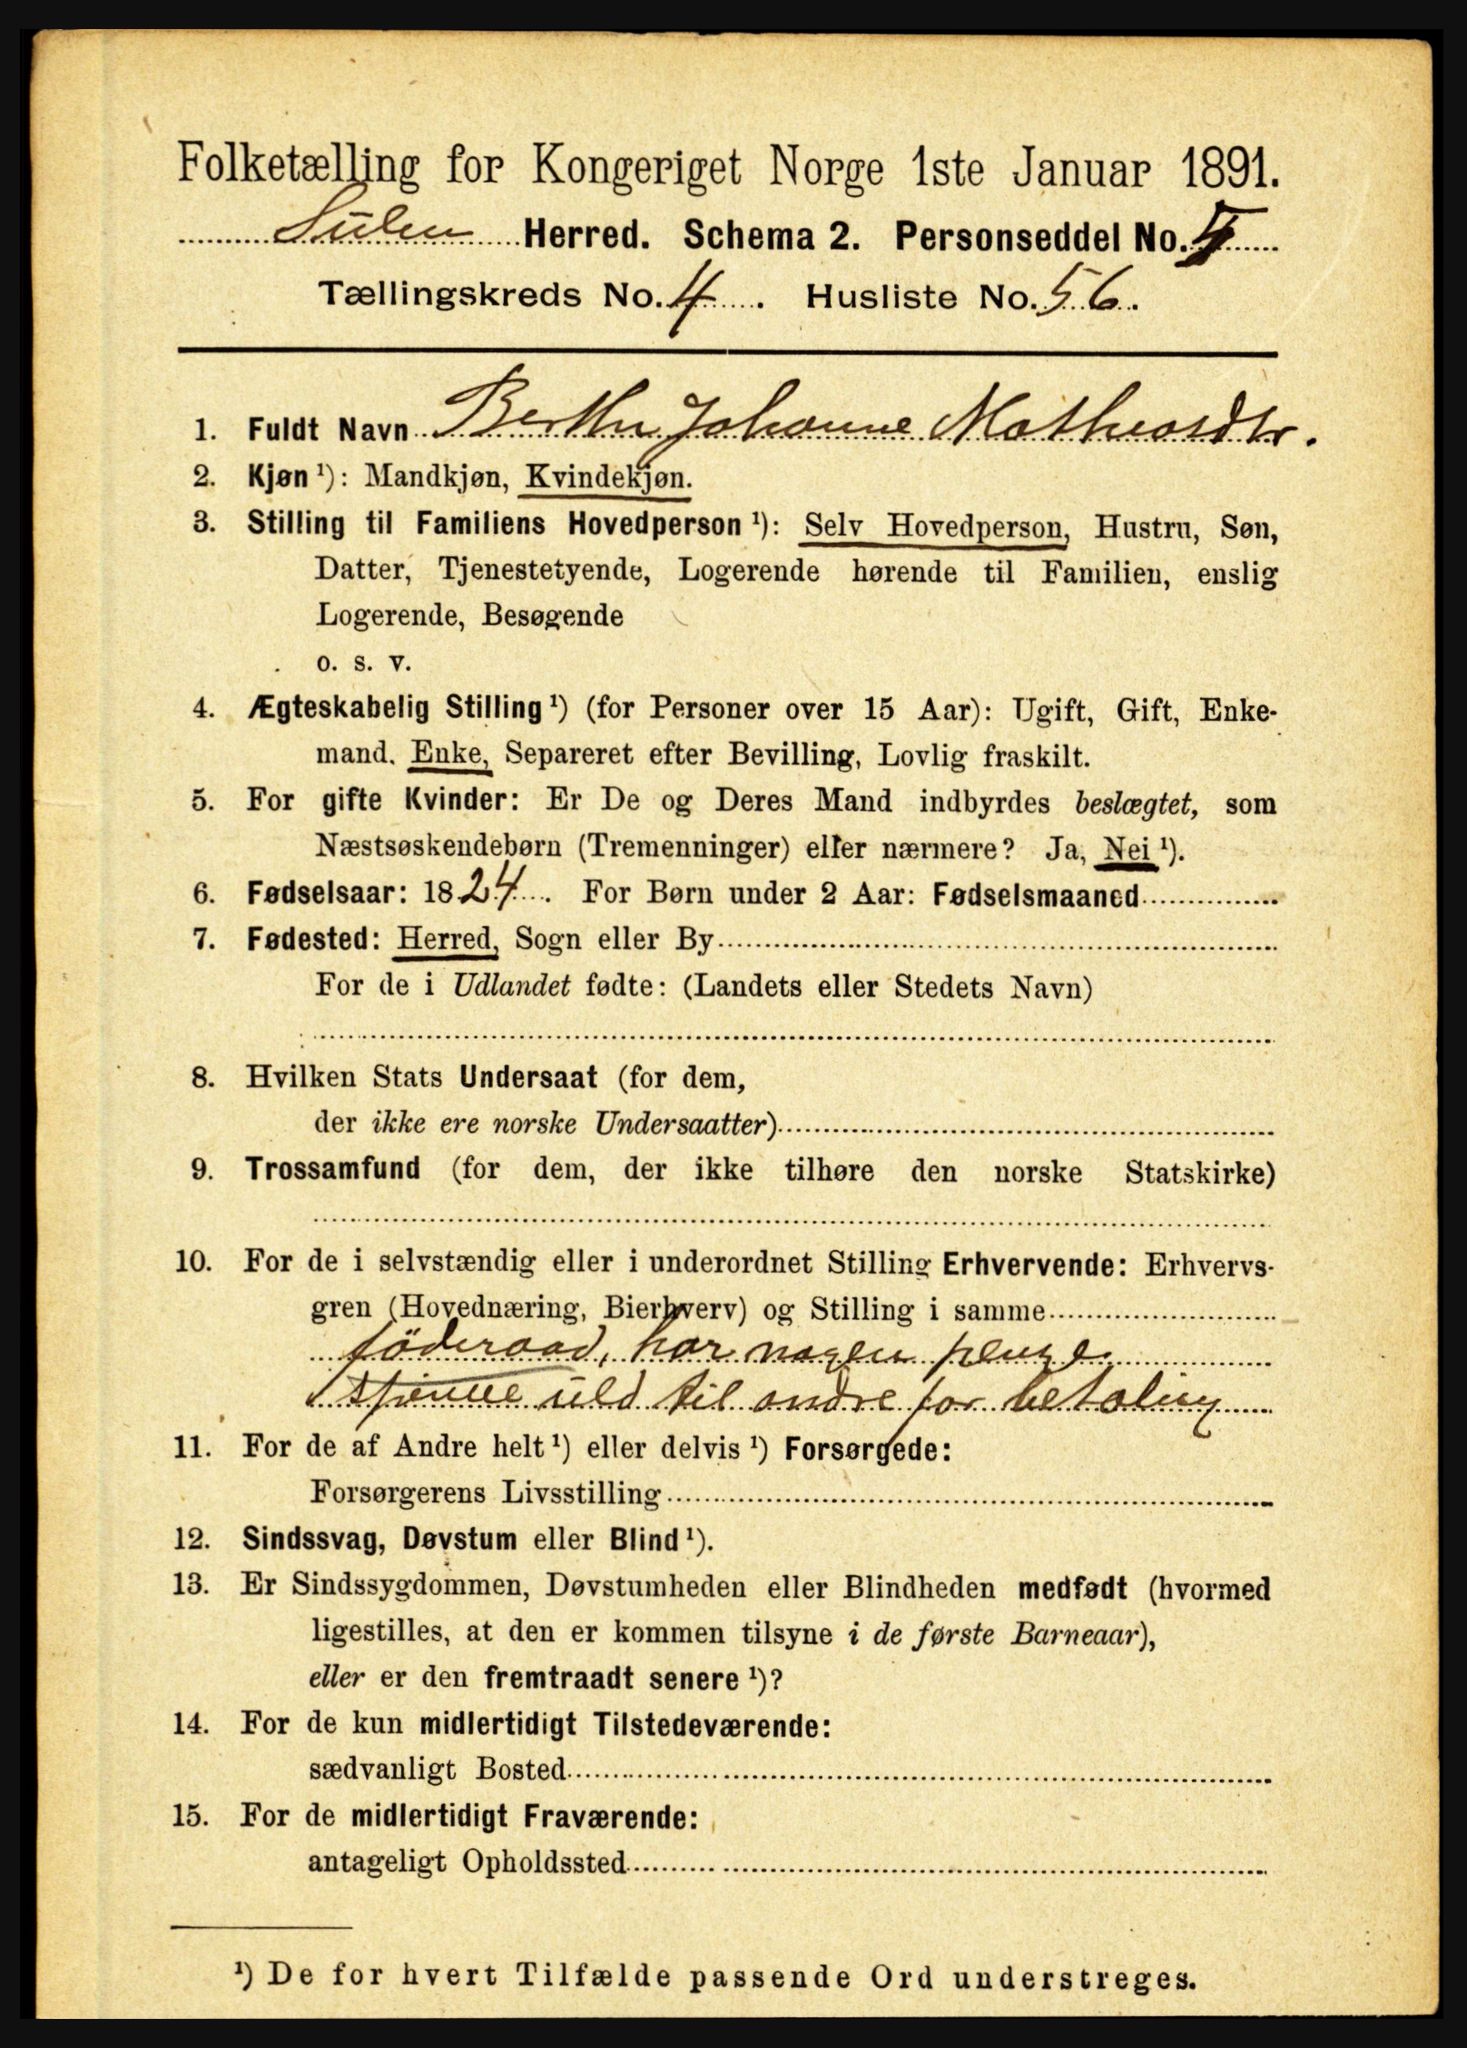 Folketælling for Kongeriget Norge 1ste Januar 1891.
Sulen Herred. Schema 2. Personseddel No.
Tællingskreds No. 4. Husliste No. 56.
1. Fuldt Navn Berthe Johanne Mathiasdtr.
2. Kjøn ¹): Mandkjøn, Kvindekjøn.
3. Stilling til Familiens Hovedperson ¹): Selv Hovedperson, Hustru, Søn,
Datter, Tjenestetyende, Logerende hørende til Familien, enslig
Logerende, Besøgende
o. s. v.
4. Ægteskabelig Stilling ¹) (for Personer over 15 Aar): Ugift, Gift, Enke-
mand, Enke, Separeret efter Bevilling, Lovlig fraskilt.
5. For gifte Kvinder: Er De og Deres Mand indbyrdes beslægtet, som
Næstsøskendebørn (Tremenninger) eller nærmere? Ja, Nei ¹).
6. Fødselsaar: 1824. For Børn under 2 Aar: Fødselsmaaned
7. Fødested: Herred, Sogn eller By
For de i Udlandet fødte: (Landets eller Stedets Navn)
8. Hvilken Stats Undersaat (for dem,
der ikke ere norske Undersaatter)
9. Trossamfund (for dem, der ikke tilhøre den norske Statskirke)
10. For de i selvstændig eller i underordnet Stilling Erhvervende: Erhvervs-
gren (Hovednæring, Bierhverv) og Stilling i samme
föderaad, har nogen penge
spinne uld til andre for betaling
11. For de af Andre helt ¹) eller delvis ¹) Forsørgede:
Forsørgerens Livsstilling
12. Sindssvag, Døvstum eller Blind ¹).
13. Er Sindssygdommen, Døvstumheden eller Blindheden medfødt (hvormed
ligestilles, at den er kommen tilsyne i de første Barneaar),
eller er den fremtraadt senere ¹)?
14. For de kun midlertidigt Tilstedeværende:
sædvanligt Bosted
15. For de midlertidigt Fraværende:
antageligt Opholdssted
¹) De for hvert Tilfælde passende Ord understreges.